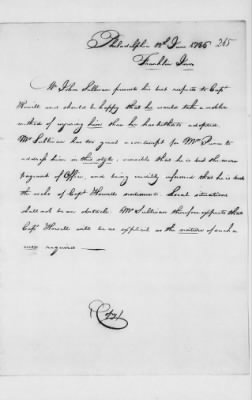 Philadelphia 12th June 1786 245
Franklin Inn
Mr John Sullivan presents his best respects to Capt
Howell and should be happy that he would take a nobler
method of injuring him than he has hitherto adopted
Mr Sullivan has too great a contempt for Mr Pierce to
address him in this style, sensible that he is but the mere
pageant of Office, and being credibly informed that he is but
the echo of Capt Howells sentiments. Local situations
shall not be an obstacle. Mr Sullivan therefore expects that
Capt Howell will be as explicit as the nature of such a
case requires —